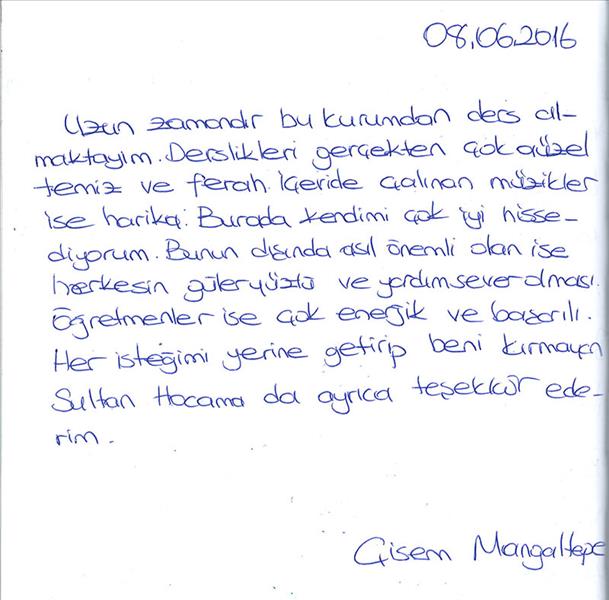 08.06.2016
Uzun zamandır bu kurumdan ders al-
maktayım. Derslikleri gerçekten çok güzel
temiz ve ferah. İçeride çalınan müzikler
ise harika. Burada kendimi çok iyi hisse-
diyorum. Bunun dışında asıl önemli olan ise
herkesin güleryüzlü ve yardımsever olması.
Öğretmenler ise çok enerjik ve başarılı.
Her isteğimi yerine getirip beni kırmayan
Sultan Hocama da ayrıca teşekkür ede-
rim.
Gisem Mangaltepe